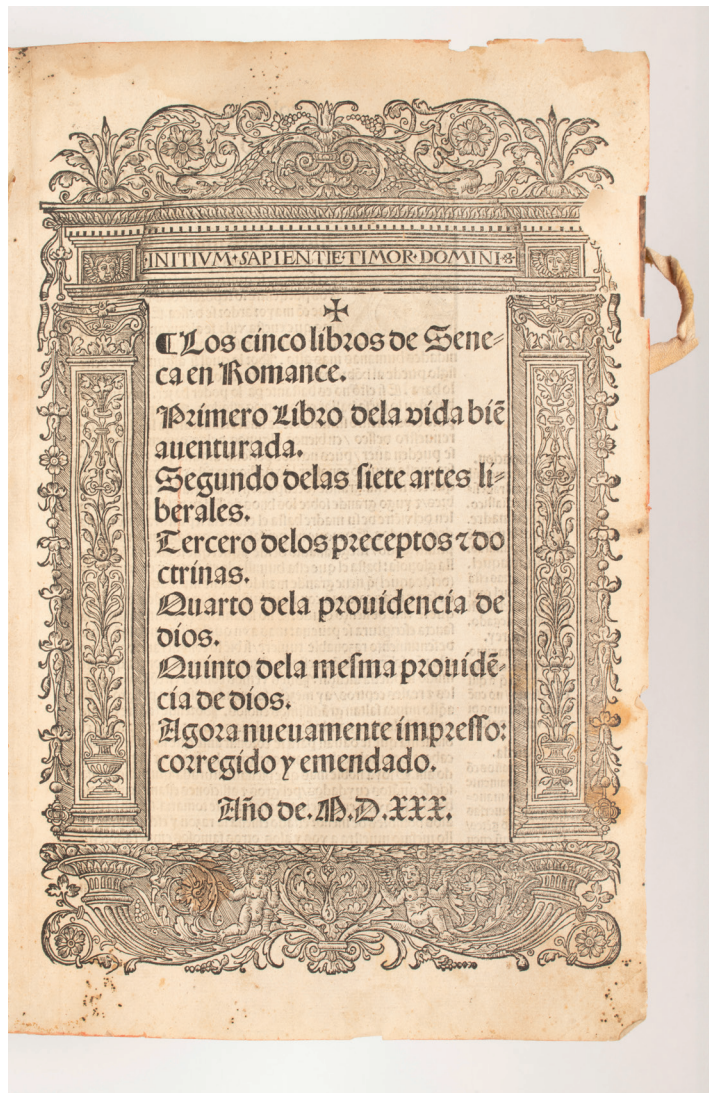 ·INITIVM·SAPIENTIE·TIMOR·DOMINI·
✠
¶Los cinco libros de Sene⸗
ca en Romance.
Primero Libro dela vida biẽ
auenturada.
Segundo delas siete artes li⸗
berales.
Tercero delos preceptos ⁊ do
ctrinas.
Quarto dela prouidencia de
dios.
Quinto dela mesma prouidẽ⸗
cia de dios.
Agora nueuamente impresso:
corregido y emendado.
Año de.M.D.XXX.